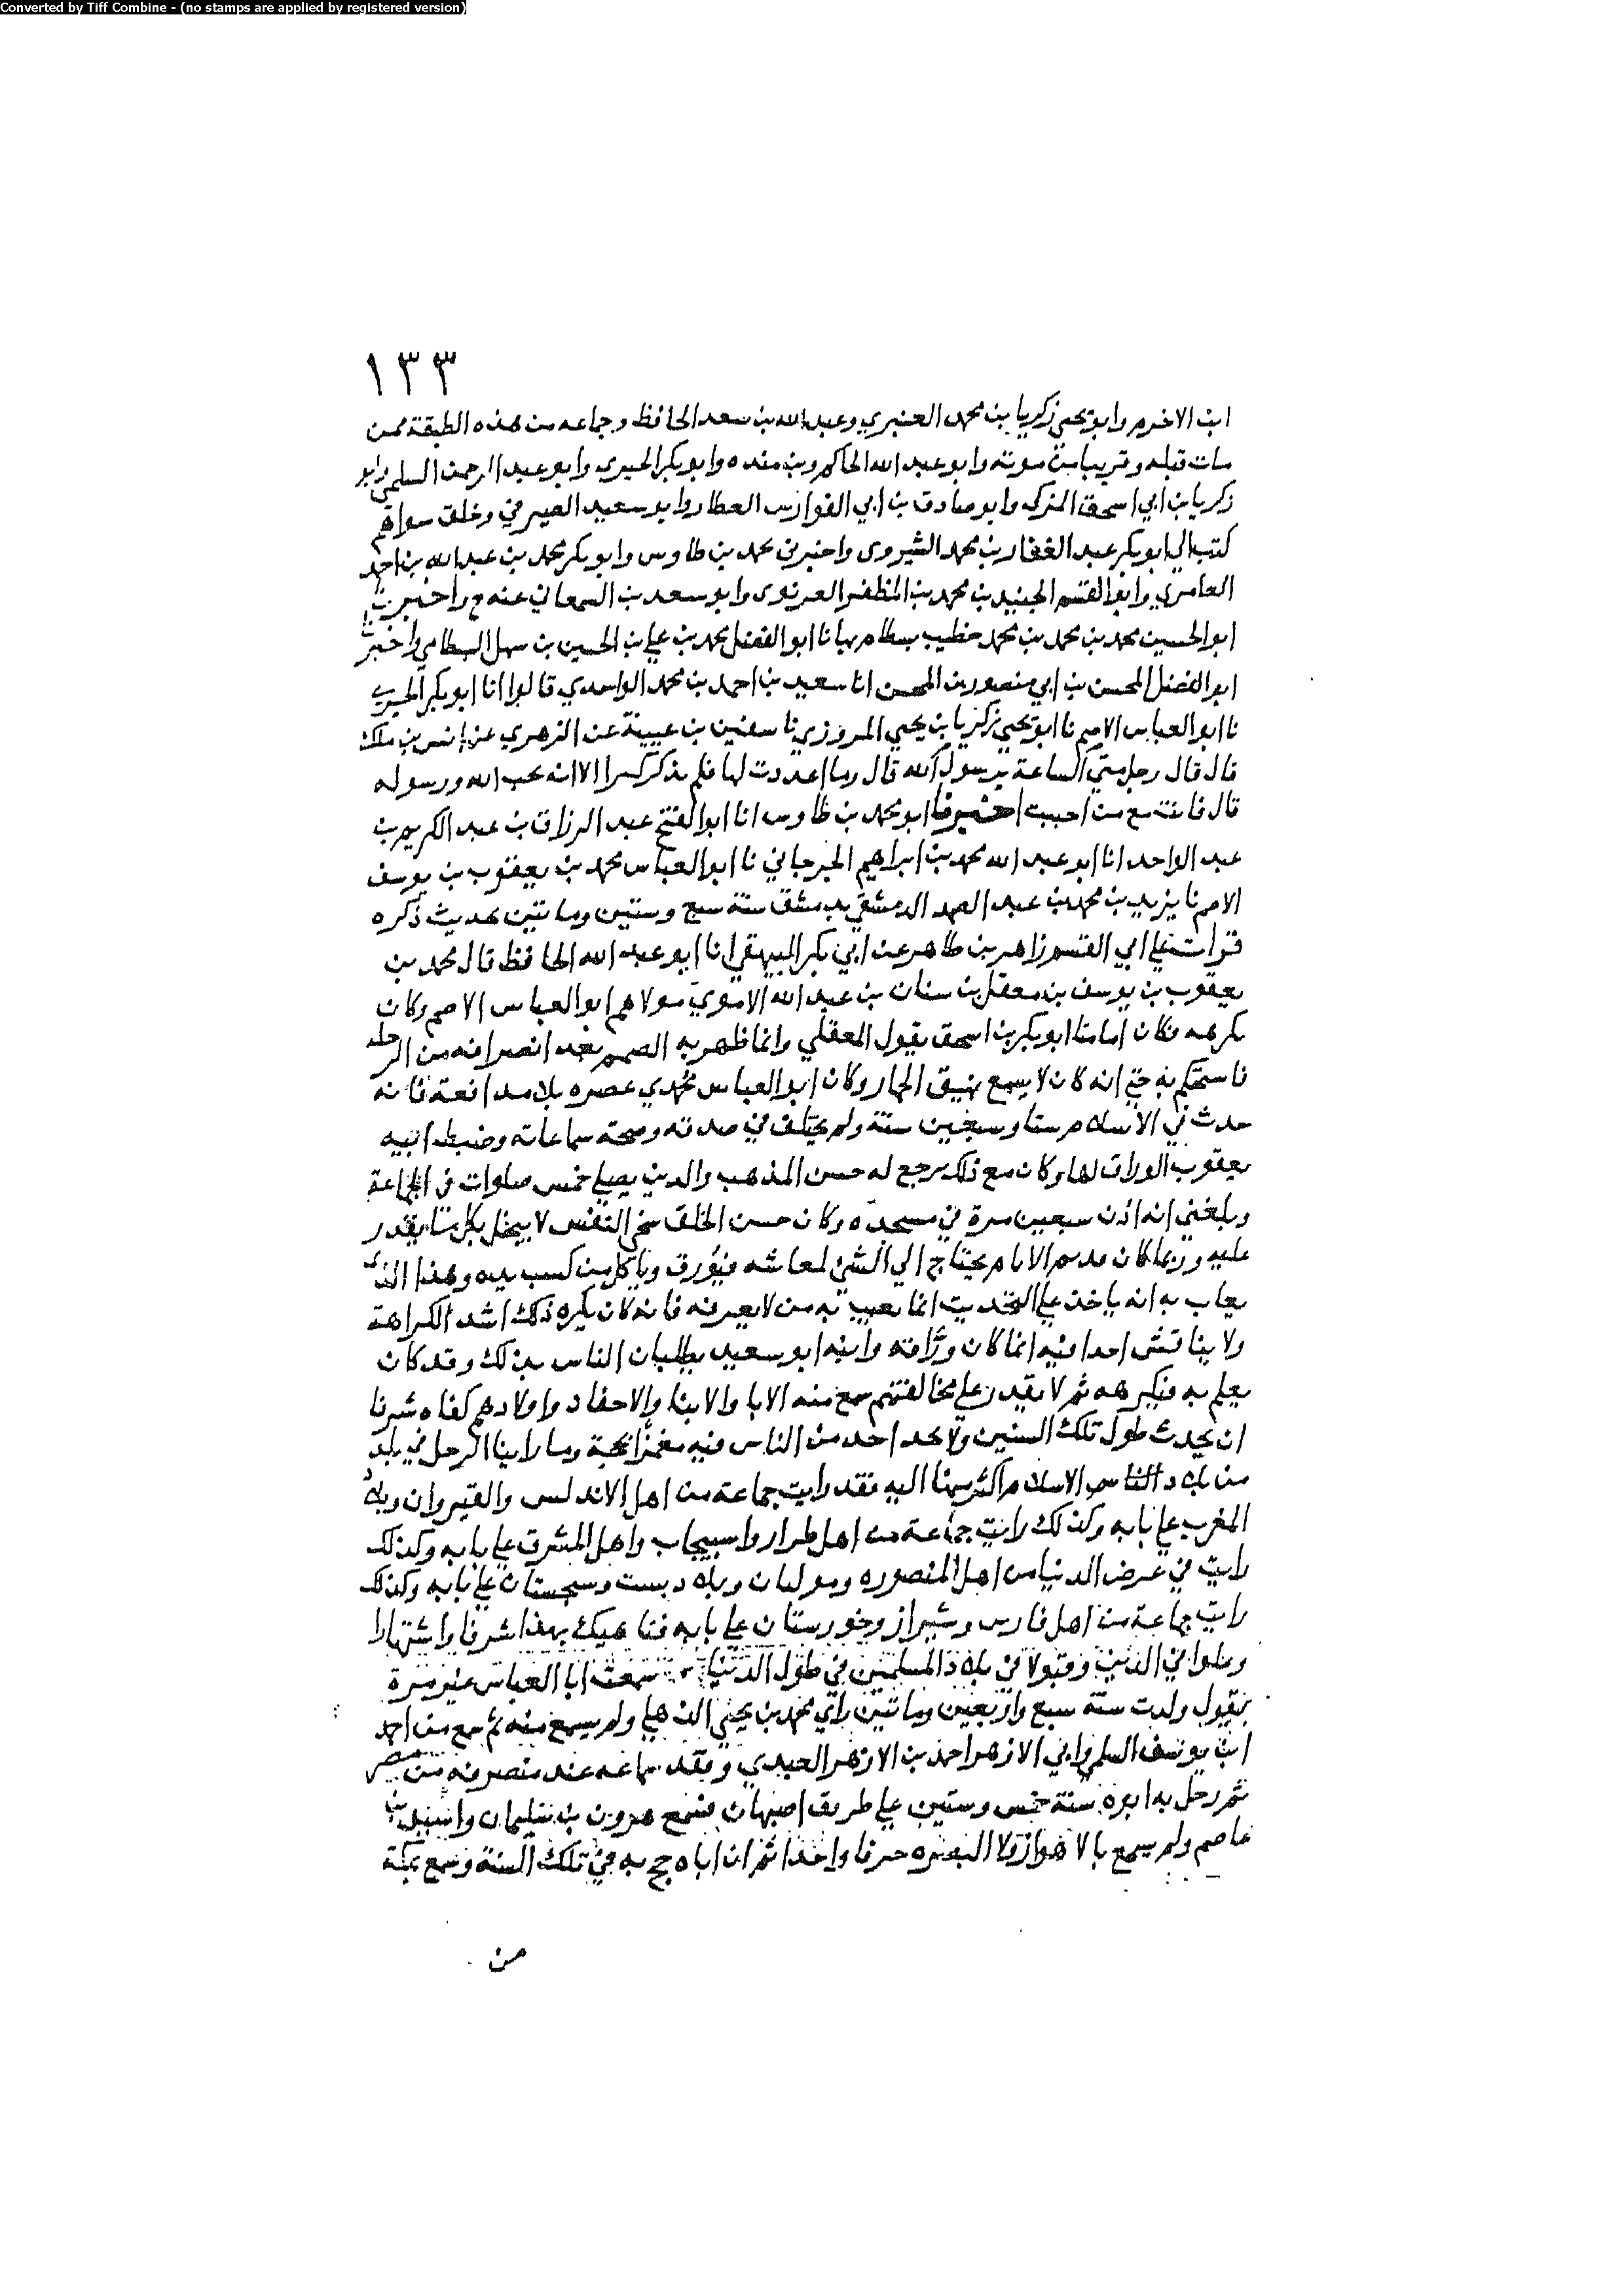 Converted by Tiff Combine - (no stamps are applied by registered version)
١٣٣
ابن الاخرم وابو يحيى زكريا بن محمد العنبري وعبد الله بن سعد الحافظ وجماعه من هذه الطبقة ممن
مات قبله وقريبا من موته وابو عبد الله الحاكم وبن منده وابو بكر الحيري وابو عبد الرحمن السلمي وابو
زكريا بن ابي اسحق المزكى وابو صادق بن ابي الفوارس العطار وابو سعيد الصيرفي وخلق سواهم
كتب الي ابو بكر عبد الغفار بن محمد الشيروى واخبرنى محمد بن طاوس وابو بكر محمد بن عبد الله بن احمد
العامري وابو القسم الجنيد بن محمد بن المظفر الغزنوى وابو سعد بن السمعاني عنه ح واخبرنا
ابو الحسين محمد بن محمد بن محمد خطيب بسطام بها نا ابو الفضل محمد بن علي بن الحسين بن سهل البسطامي واخبرنا
ابو الفضل المحسن بن ابي منصور بن المحسن انا سعيد بن احمد بن محمد الواحدي قالوا انا ابو بكر الحيري
نا ابو العباس الاصم نا ابو يحيى زكريا بن يحيي المروزي نا سفين بن عيينة عن الزهري عن انس بن ملك
قال قال رجل متي الساعة يرسول الله قال وما اعددت لها فلم يذكر كبيرا الا انه يحب الله ورسوله
قال فانت مع من احببت اخبرنا ابو محمد بن طاوس انا ابو الفتح عبد الرزاق بن عبد الكريم بن
عبد الواحد انا ابو عبد الله محمد بن ابراهيم الجرجاني نا ابو العباس محمد بن يعقوب بن يوسف
الاصم نا يزيد بن محمد بن عبد الصمد الدمشقي بدمشق سنة سبع وستين ومائتين بحديث ذكره
قرات علي ابي القسم زاهر بن طاهر عن ابي بكر البيهقي انا ابو عبد الله الحافظ قال محمد بن
يعقوب بن يوسف بن معقل بن سنان بن عبد الله الاموي مولاهم ابو العباس الاصم وكان
يكرهه فكان امامنا ابو بكر بن اسحق يقول المعقلي وانما ظهر به الصمم بعد انصرافه من الرحلة
فاستحكم به حتي انه كان لا يسمع نهيق الحمار وكان ابو العباس محدي عصره بلا مدافعة فانه
حدث في الاسلام ستا وسبعين سنة ولم يختلف في صدقه وصحة سماعاته وضبط ابيه
يعقوب الوراق لها وكان مع ذلك يرجع له حسن المذهب والدين يصلي خمس صلوات في الجماعة
وبلغني انه اذن سبعين سرة في مسجده وكان حسن الخلق سخي النفس لا يبخل بكل ما يقدر
عليه وربما كان مدسم الايام يحتاج الي الشئ لمعاشه فيورق وياكل من كسب يده وهذا الذي
يعاب به انه ياخذ علي التحديث انما يعيب به من لا يعرفه فانه كان يكره ذلك اشد الكراهة
ولا يناقش احدا فيه انما كان وراقه وابنه ابو سعيد يطلبان الناس بذلك وقد كان
يعلم به فيكرهه ثم لا يقدر علي مخالفتهم سمع منه الابا والابنا والاحفاد واولادهم كفاه شرفا
ان يحدث طول تلك السنين ولا يجد احد من الناس فيه مغمزا بحجة وما راينا الرحل في بلد
من بلاد الناس الاسلام اكثر منها اليه فقد رايت جماعة من اهل الاندلس والقيروان وبلاد
المغرب علي بابه وكذلك رايت جماعة من اهل طراز واسبيجاب واهل المشرق علي بابه وكذلك
رايت في عرض الدنيا من اهل المنصوره ومولتان وبلاد بست وسجستان علي بابه وكذلك
رايت جماعة من اهل فارس وشيراز وخورستان علي بابه فناهيك بهذا شرفا واشتهارا
وعلوا في الدين وقبولا في بلاد المسلمين في طول الدنيا سمعت ابا العباس غير مرة
يقول ولدت سنة سبع واربعين ومائتين راي محمد بن يحيي الذهلي ولم يسمع منه ثم سمع من احمد
ابن يوسف السلمي وابي الازهر احمد بن الازهر العبدي وفقد سماعه عند منصرفه من مصر
ثم رحل به ابوه سنة خمس وستين علي طريق اصبهان فسمع هرون بن سليمان واسيد بن
عاصم ولم يسمع بالاهواز ولا البصره حرفا واحدا ثم ان اباه حج به في تلك السنة وسمع بمكة
من